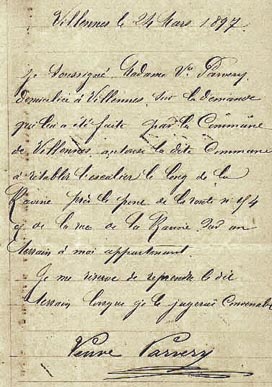 Villennes le 24 Mars 1897
je soussigné Madame Vve Parvery
domiciliée à Villennes, sur la demande
qui lui a été faite par la Commune
de Villennes, autorise la dite Commune
à rétablir l'escalier le long de la
Ravine près le pont de la route n° 154
et de la rue de la Ravine sur un
terrain à moi appartenant.
Je me réserve de reprendre le dit
terrain lorsque je le jugerai convenable
Veuve Parvery